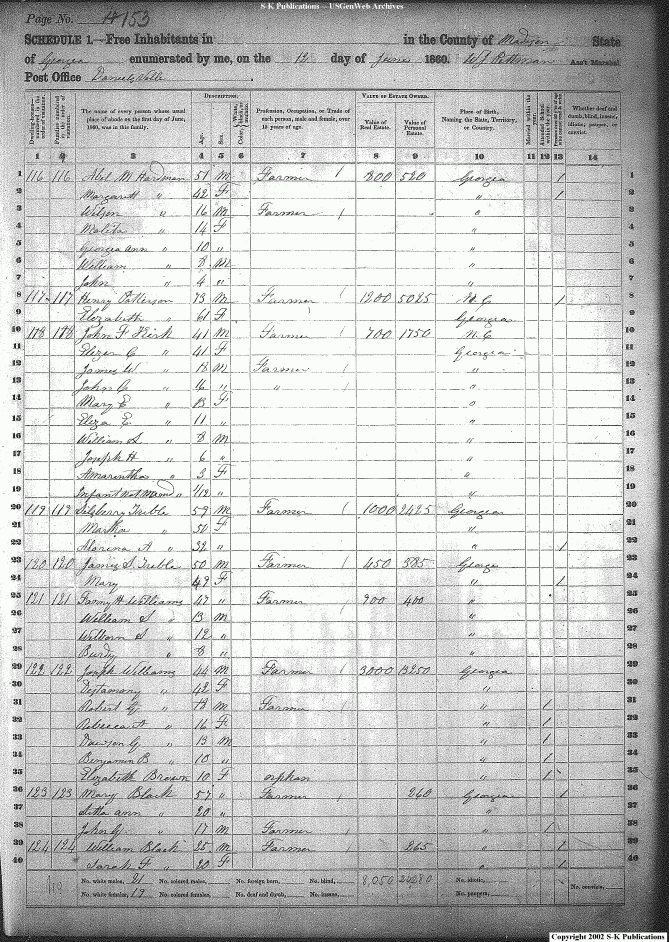 S-K Publications -- USGenWeb Archives
Page No. 153
SCHEDULE 1.—Free Inhabitants in in the County of Madison State
of Georgia enumerated by me, on the 12 day of June 1860. W J Pittman Ass't Marshal
Post Office Danielsville
Dwelling-houses numbered in the order of visitation. Families numbered in the order of visitation. The name of every person whose usual place of abode on the first day of June, 1860, was in this family. DESCRIPTION. Age. Sex. Color, Profession, Occupation, or Trade of each person, male and female, over 15 years of age. VALUE OF ESTATE OWNED. Value of Real Estate. Value of Personal Estate. Place of Birth, Naming the State, Territory, or Country. Married within the year. Attended School within the year. Whether deaf and dumb, blind, insane, idiotic, pauper, or convict.
1 2 3 4 5 6 7 8 9 10 11 12 13 14
1 116 116 Abel M Hardman 51 M Farmer 1 800 520 Georgia 1 1
2 Margarett " 42 F " 1 2
3 Wilson " 16 M Farmer 1 " 3
4 Malita " 14 F " 4
5 Georgia Ann " 10 " " 5
6 William " 8 M " 6
7 John " 4 " " 7
8 117 117 Henry Patterson 73 M Farmer 1 1200 5025 N.C 1 8
9 Elizabeth " 61 F Georgia 9
10 118 118 John F Kirk 41 M Farmer 1 700 1750 N.C 10
11 Elizer C " 41 F Georgia 11
12 James W " 18 M Farmer 1 " 12
13 John C " 16 " " 1 " 13
14 Mary E " 13 F " 14
15 Eliza E " 11 " " 15
16 William S " 8 M " 16
17 Joseph H " 6 " " 17
18 Amarintha " 3 F " 18
19 Infant Not Named " /12 " " 19
20 119 119 Treble 59 M Farmer 1 1000 2425 Georgia 20
21 Martha " 50 F " 21
22 A " 32 " " 1 22
23 120 120 James S. Treble 50 M Farmer 1 450 385 Georgia 23
24 Mary 49 F " 1 24
25 121 121 H Williams 47 " Farmer 1 900 400 " 25
26 William S " 13 M " 26
27 Wilborn S " 12 " " 27
28 Burdy " 8 " " 28
29 122 122 Joseph Williams 44 M Farmer 1 3000 13250 Georgia 29
30 " 42 F " 30
31 Robert G " 18 M Farmer 1 " 1 31
32 Rebecca A " 16 F " 1 32
33 Dawson G " 13 M " 1 33
34 Benjamin B " 10 " " 1 34
35 Elizabeth Brown 10 F orphan " 1 35
36 123 123 Mary Black 57 " Farmer 1 260 Georgia 1 36
37 Ann " 20 " " 37
38 John G " 17 M Farmer 1 " 1 38
39 124 124 William Black 25 M Farmer 1 265 " 1 39
40 Sarah F " 20 F " 1 40
No. white males, 21 No. colored males, No. foreign born, No. blind, 8,050 24280 No. idiotic, No. convicts,
No. white females, 19 No. colored females, No. deaf and dumb, No. insane, No. paupers,
Copyright 2002 S-K Publications